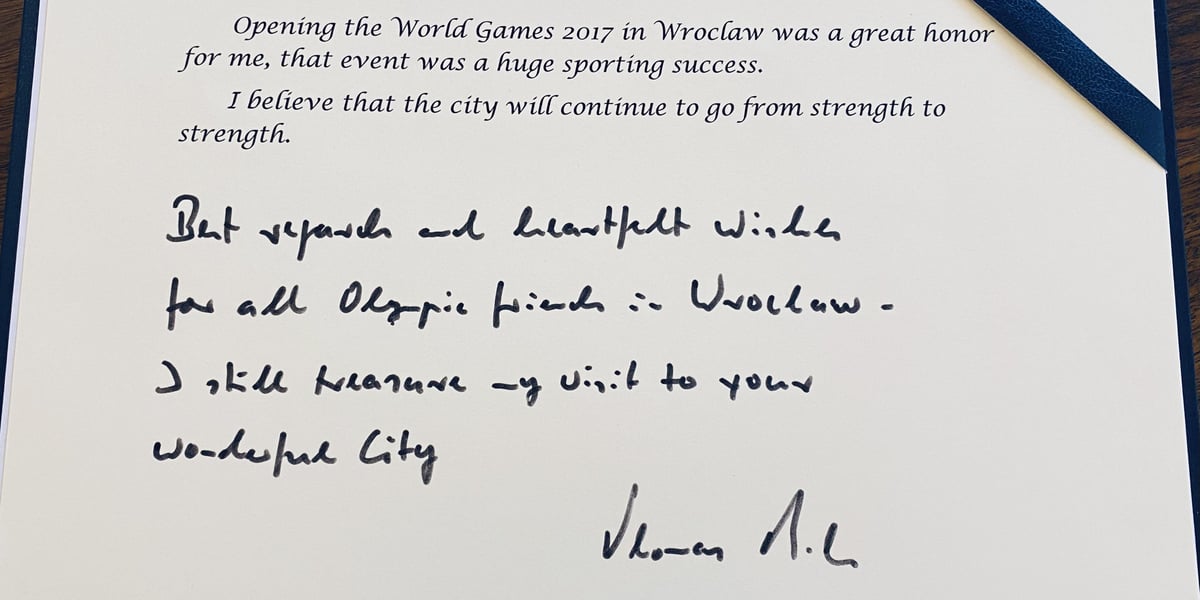 Opening the World Games 2017 in Wroclaw was a great honor
for me, that event was a huge sporting success.
I believe that the city will continue to go from strength to
strength.
Best regards and heartfelt wishes
for all Olympic friends in Wroclaw -
I still treasure my visit to your
wonderful City
Thomas